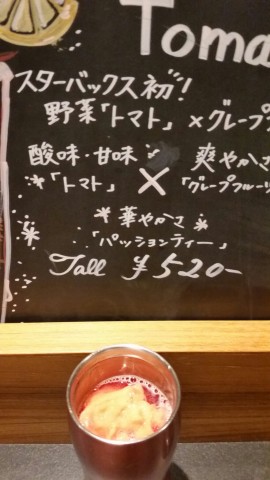 Toma
スターバックス初!
野菜「トマト」×グレープ
酸味・甘味 爽やかさ
「トマト」 × 「グレープフルーツ
華やかさ
「パッションティー」
Tall ¥520-